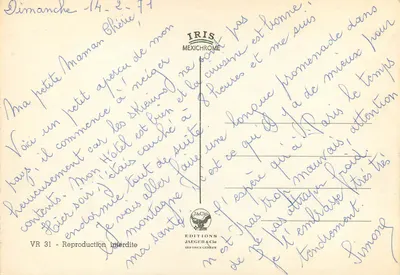 Dimanche 14-2-71
Ma petite Maman Chérie,
Voici un petit aperçu de mon
pays, il commence à neiger
heureusement car les skieurs ne sont pas
contents. Mon Hôtel est bien et la cuisine est bonne.
Hier soir j'étais couchée à 8 heures et me suis
endormie tout de suite.
Je vais aller faire une longue promenade dans
la montagne, c'est ce qu'il y a de mieux pour
ma santé.
J'espère qu'à Paris le temps
n'est pas trop mauvais, attention
de ne pas attraper froid.
Je t'embrasse très très
tendrement.
IRIS
MEXICHROME
VR 31 - Reproduction interdite
EDITIONS
JAEGER & Cie